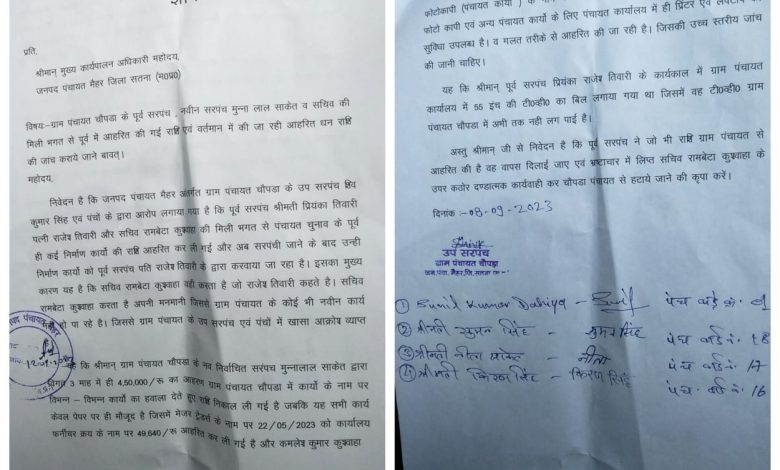 प्रति,
श्रीमान् मुख्य कार्यपालन अधिकारी महोदय,
जनपद पंचायत मैहर जिला सतना (म0प्र0)
विषय:-ग्राम पंचायत चौपडा के पूर्व सरपंच , नवीन सरपंच मुन्ना लाल साकेत व सचिव की
मिली भगत से पूर्व में आहरित की गई राशि एवं वर्तमान में की जा रही आहरित धन राशि
की जांच कराये जाने बावत्।
महोदय,
निवेदन है कि जनपद पंचायत मैहर अंतर्गत ग्राम पंचायत चौपडा के उप सरपंच शिव
कुमार सिंह एवं पंचों के द्वारा आरोप लगाया गया है कि पूर्व सरपंच श्रीमती प्रियंका तिवारी
पत्नी राजेश तिवारी और सचिव रामबेटा कुशवाहा की मिली भगत से पंचायत चुनाव के पूर्व
ही कई निर्माण कार्यो की राशि आहरित कर ली गई और अब सरपंची जाने के बाद उन्ही
निर्माण कार्यो को पूर्व सरपंच पति राजेश तिवारी के द्वारा करवाया जा रहा है। इसका मुख्य
कारण यह है कि सचिव रामबेटा कुशवाहा वही करता है जो राजेश तिवारी कहते है। सचिव
रामबेटा कुशवाहा करता है अपनी मनमानी जिससे ग्राम पंचायत के कोई भी नवीन कार्य
हो पा रहे है। जिससे ग्राम पंचायत के उप सरपंच एवं पंचों में खासा आक्रोश व्याप्त
कि श्रीमान् ग्राम पंचायत चौपडा के नव निर्वाचित सरपंच मुन्नालाल साकेत द्वारा
3 माह में ही 4,50,000/रू का आहरण ग्राम पंचायत चौपडा में कार्यो के नाम पर
विभन्न - विभन्न कार्यो का हवाला देते हुए राशि निकाल ली गई है जबकि यह सभी कार्य
केवल पेपर पर ही मौजूद है जिसमें मेजर ट्रेडर्स के नाम पर 22/05/2023 को कार्यालय
फर्नीचर क्रय के नाम पर 49,640/रू आहरित कर ली गई है और कमलेश कुमार कुशवाहा
फोटोकापी (पंचायत कार्यो ) के
फोटो कापी एवं अन्य पंचायत कार्यो के लिए पंचायत कार्यालय में ही प्रिंटर एवं लैपटॉप
सुविधा उपलब्ध है। व गलत तरीके से आहरित की जा रही है। जिसकी उच्च स्तरीय जांच
की जानी चाहिए।
यह कि श्रीमान् पूर्व सरपंच प्रियंका राजेश तिवारी के कार्यकाल में ग्राम पंचायत
कार्यालय में 55 इंच की टी0व्ही0 का बिल लगाया गया था जिसमें वह टी0व्ही0 ग्राम
पंचायत चौपडा में अभी तक नही लग पाई है।
अस्तु श्रीमान् जी से निवेदन है कि पूर्व सरपंच ने जो भी राशि ग्राम पंचायत से
आहरित की है वह वापस दिलाई जाए एवं भ्रष्टाचार में लिप्त सचिव रामबेटा कुशवाहा के
उपर कठोर दण्डात्मक कार्यवाही कर चौपडा पंचायत से हटाये जाने की कृपा करें।
दिनांक :-08-09-2023
उप सरपंच
ग्राम पंचायत चौपडा
जन.पंचा. मैहर,जि.-सतना
① Sunil Kumar Dahiya - Sunil पंच वार्ड क्र.
② श्रीमती सुमन सिंह - सुमन सिंह पंच वार्ड नं. 18
③ श्रीमती नीता साकेत - नीता पंच वार्ड नं. 17
④ श्रीमती किरण सिंह - किरण सिंह पंच वार्ड नं. 16